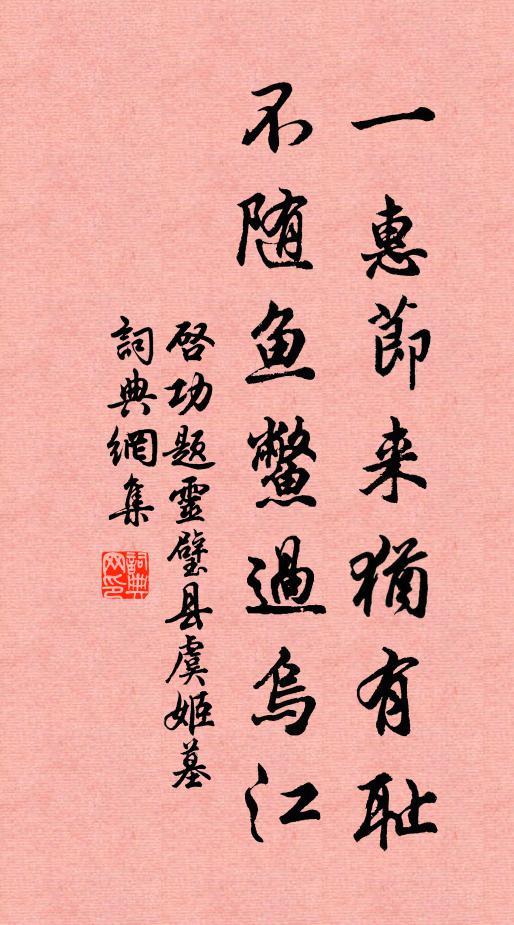 一惠節来猶有耻
不随鱼鱉過烏江
啓功題靈璧县虞姬墓
詞典網集
詞典網印